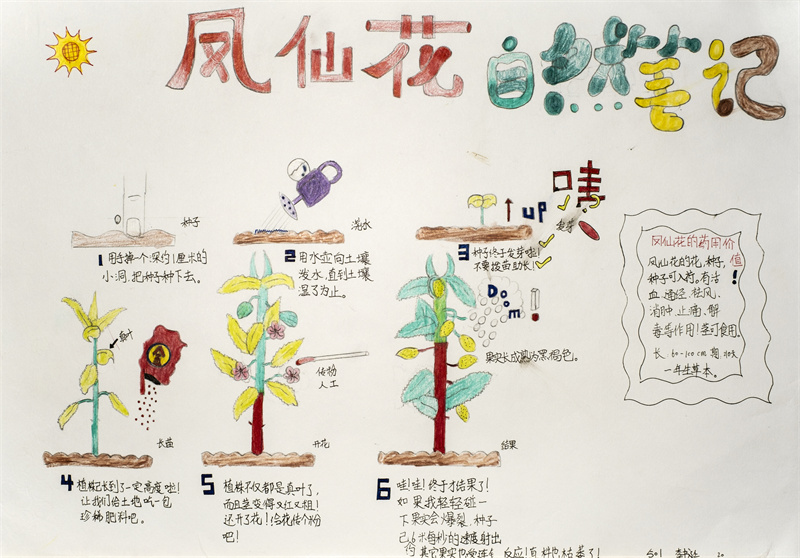 凤仙花
自然笔记
种子
1 用手挖一个深约1厘米的
小洞,把种子种下去。
浇水
2 用水壶向土壤
泼水,直到土壤
湿了为止。
哇
UP
发芽
3 种子终于发芽啦!
不要拔苗助长!
凤仙花的药用价值!
凤仙花的花,种子,
种子可入药。有活
血、通经、祛风、
消肿、止痛、解
毒等作用!茎可食用。
长:60-100cm
一年生草本。
真叶
长苗
4 植株长到了一定高度啦!
让我们给土地吃一包
珍稀肥料吧。
传粉
人工
开花
5 植株不仅都是真叶了,
而且茎变得又红又粗!
还开了花!给花传个粉
吧!
Doom!
果实长成熟为黑褐色。
结果
6 哇!哇!终于才结果了!
如果我轻轻碰一
下果实会爆裂,种子
已6米每秒的速度射出